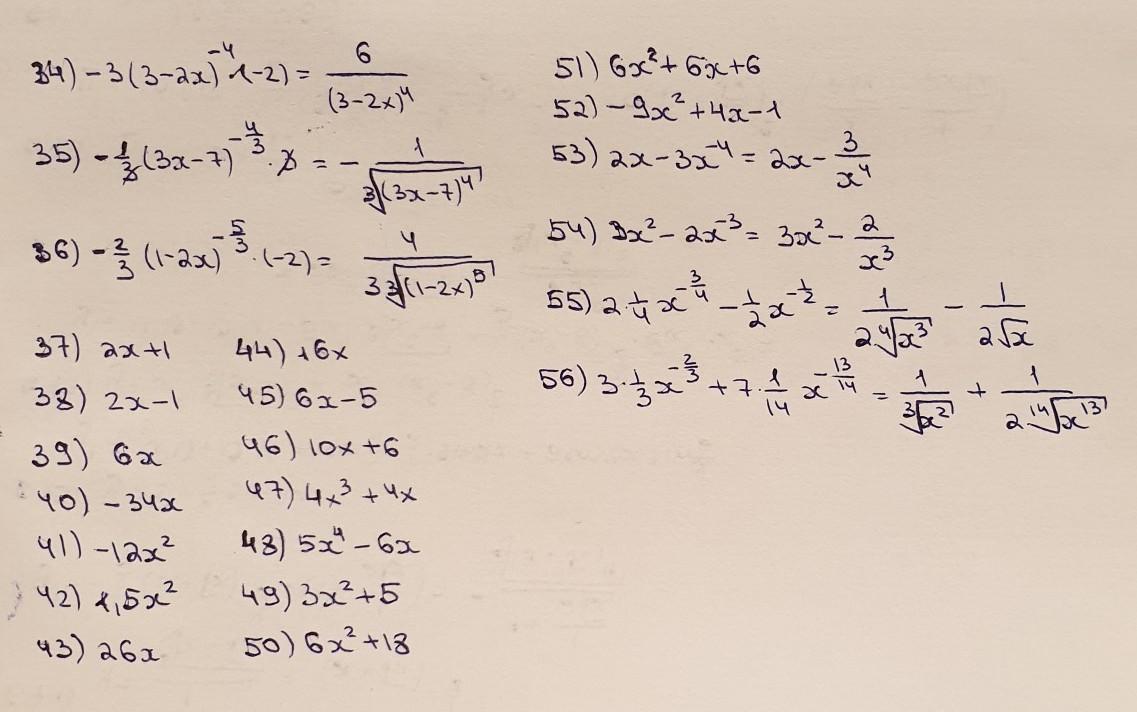 34) -3(3-2x)^{-4}·(-2) = \frac{6}{(3-2x)^4}
35) -\frac{1}{3}(3x-7)^{-\frac{4}{3}}·3 = -\frac{1}{\sqrt[3]{(3x-7)^4}}
36) -\frac{2}{3}(1-2x)^{-\frac{5}{3}}·(-2) = \frac{4}{3\sqrt[3]{(1-2x)^5}}
37) 2x+1
38) 2x-1
39) 6x
40) -34x
41) -12x²
42) 1,5x²
43) 26x
44) 16x
45) 6x-5
46) 10x+6
47) 4x³+4x
48) 5x⁴-6x
49) 3x²+5
50) 6x²+18
51) 6x²+6x+6
52) -9x²+4x-1
53) 2x-3x^{-4} = 2x-\frac{3}{x^4}
54) 3x²-2x^{-3} = 3x²-\frac{2}{x^3}
55) 2·\frac{1}{4}x^{-\frac{3}{4}} - \frac{1}{2}x^{-\frac{1}{2}} = \frac{1}{2\sqrt[4]{x^3}} - \frac{1}{2\sqrt{x}}
56) 3·\frac{1}{3}x^{-\frac{2}{3}} + 7·\frac{1}{14}x^{-\frac{13}{14}} = \frac{1}{\sqrt[3]{x^2}} + \frac{1}{2\sqrt[14]{x^{13}}}